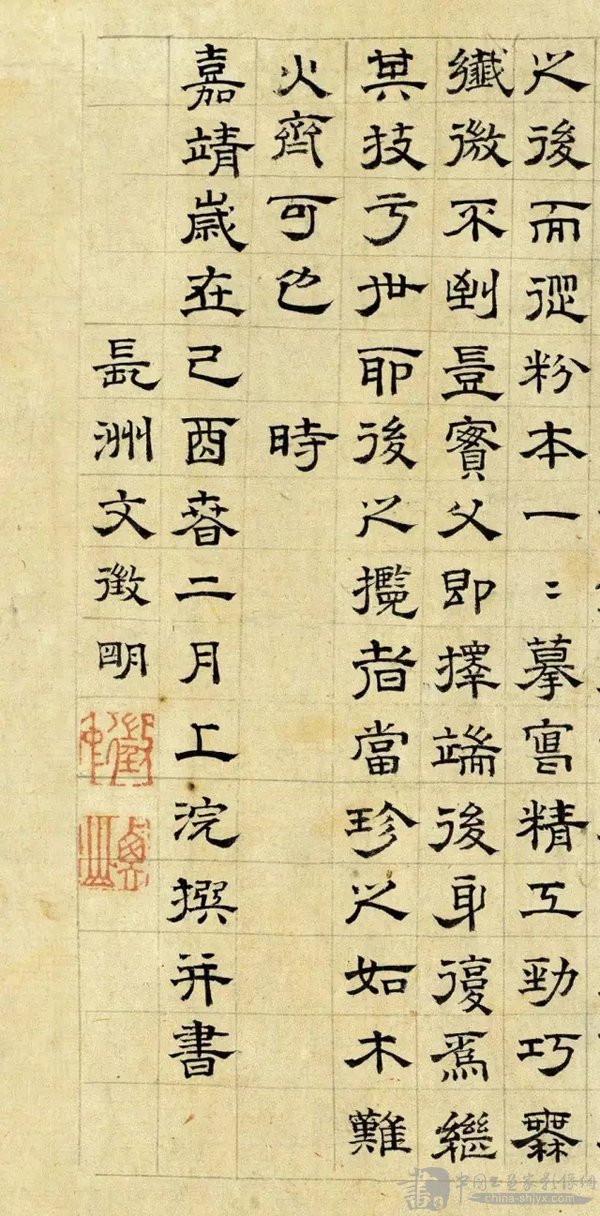 之後而從粉本一〻摹寫精工勁巧橆
纖微不到豈實父即擇端後身復爲繼
其技亏世耶後之攬者當珍之如木難
火齊可也　時
嘉靖歲在己酉春二月上浣撰并書
長洲文徵明
china-shjyx.com